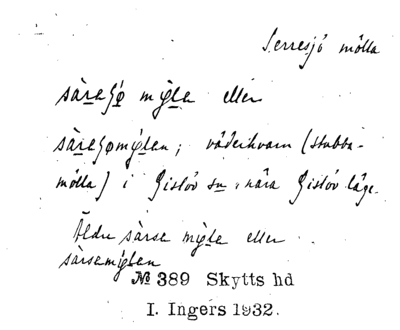 Serresjö mölla
sàrɐʃø mỳlɐ eller
sàrɐʃømýlɐn; väderkvarn (stubba-
mölla) i Gislöv sn, nära Gislöv läge.
Äldre sàrse mỳlɐ eller
sàrsemýlɐn
№ 389 Skytts hd
I. Ingers 1932.